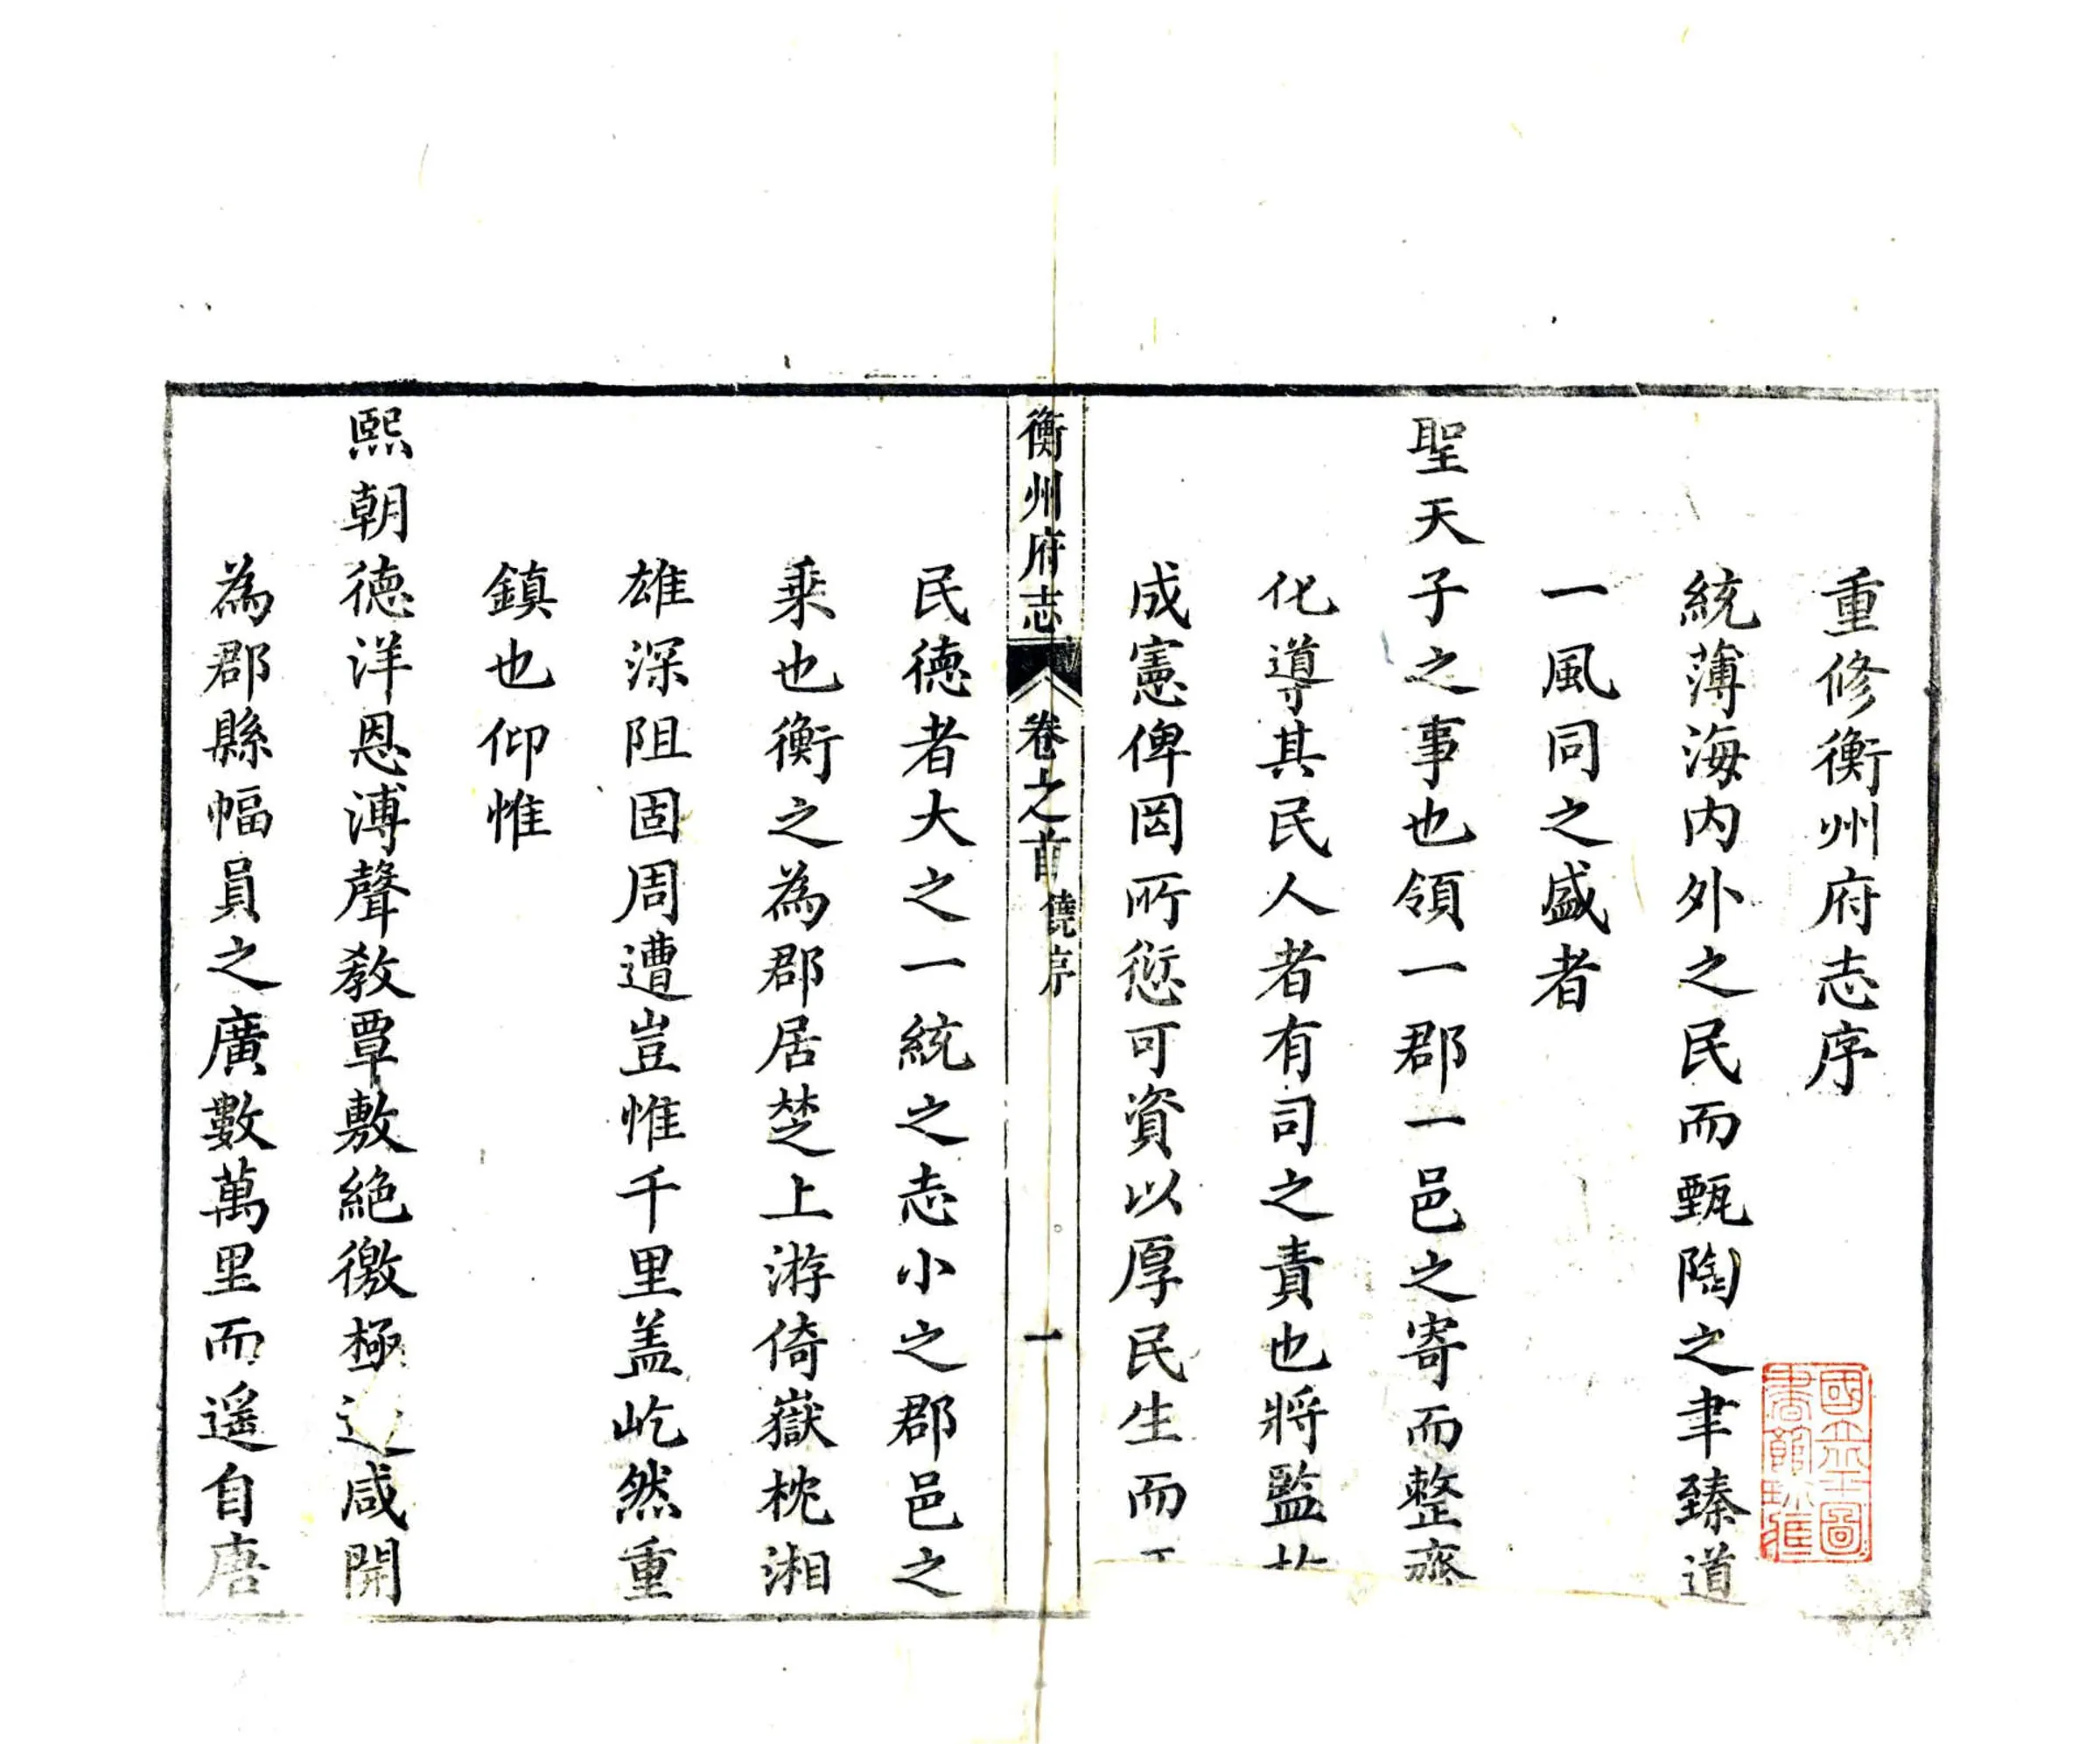 重修衡州府志序
統薄海内外之民而甄陶之聿臻道
一風同之盛者
聖天子之事也領一郡一邑之寄而整齊
化導其民人者有司之責也將監
成憲俾罔所愆可資以厚民生而
衡州府志
卷之首
饒序
一
民德者大之一統之志小之郡邑之
乗也衡之為郡居楚上游倚嶽枕湘
雄深阻固周遭豈惟千里盖屹然重
鎮也仰惟
熙朝德洋恩溥聲教覃敷絶徼極邊咸開
為郡縣幅員之廣數萬里而遥自唐
國立北平圖
書館收藏